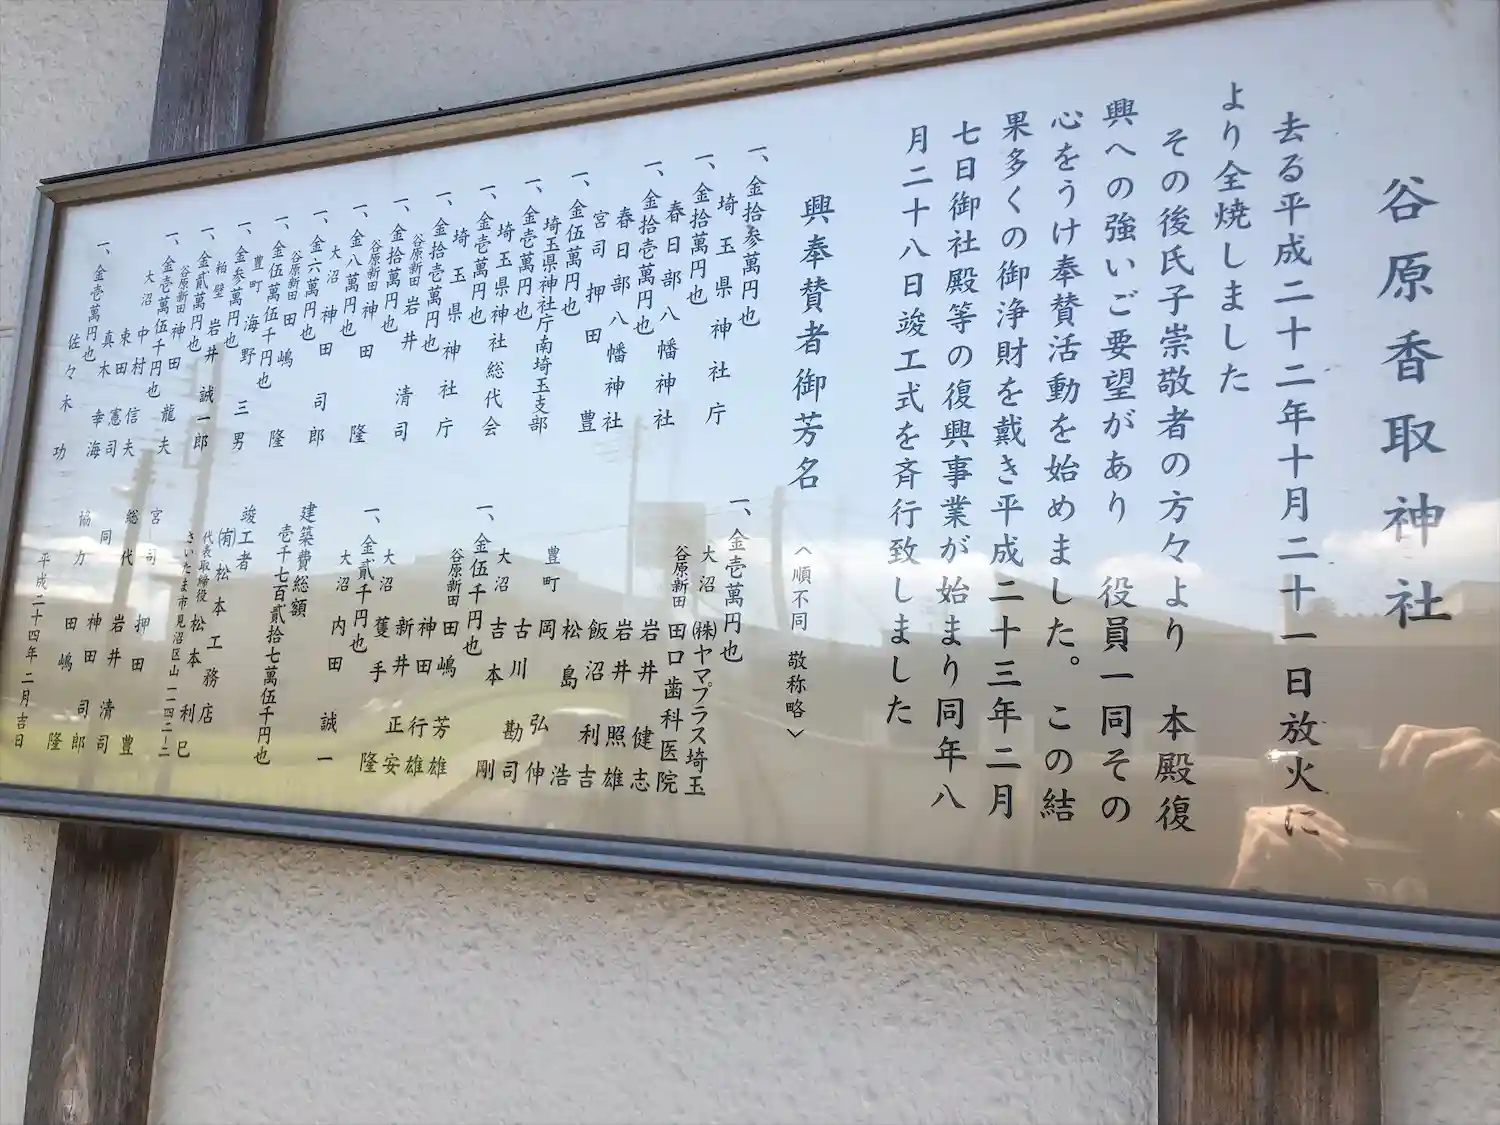 谷原香取神社
去る平成二十二年十月二十一日放火に
より全焼しました
その後氏子崇敬者の方々より 本殿復
興への強いご要望があり 役員一同その
心をうけ奉賛活動を始めました。この結
果多くの御浄財を戴き平成二十三年二月
七日御社殿等の復興事業が始まり同年八
月二十八日竣工式を斉行致しました
興奉賛者御芳名 〈順不同 敬称略〉
一、金拾参萬円也
埼玉県神社庁
一、金拾萬円也
春日部八幡神社
一、金拾壱萬円也
春日部八幡神社
宮司 押田 豊
一、金伍萬円也
埼玉県神社庁南埼玉支部
一、金壱萬円也
埼玉県神社総代会
一、金壱萬円也
埼玉県神社庁
一、金拾壱萬円也
谷原新田 岩井 清司
一、金拾萬円也
谷原新田 神田 隆
一、金八萬円也
大沼 神田 司郎
一、金六萬円也
谷原新田 田嶋 隆
一、金伍萬伍千円也
豊町 海野 三男
一、金参萬円也
粕壁 岩井 誠一郎
一、金貳萬円也
谷原新田 神田 龍夫
一、金壱萬伍千円也
大沼 中村 信夫
束田 憲司
真木 幸海
一、金壱萬円也
佐々木 功
一、金壱萬円也
大沼 ㈱ヤマプラス埼玉
谷原新田 田口歯科医院
岩井 健志
岩井 照雄
飯沼 利吉
松島 浩
豊町 岡 弘伸
古川 勘司
大沼 吉本 剛
一、金伍千円也
谷原新田 田嶋 芳雄
神田 行雄
新井 正安
大沼 隻手 隆
一、金貳千円也
大沼 内田 誠一
建築費総額
壱千七百貳拾七萬伍千円也
竣工者
㈲松本工務店
代表取締役 松本 利巳
さいたま市見沼区山
宮司 押田 豊
総代 岩井 清司
同 神田 司郎
協力 田嶋 隆
平成二十四年 二月吉日